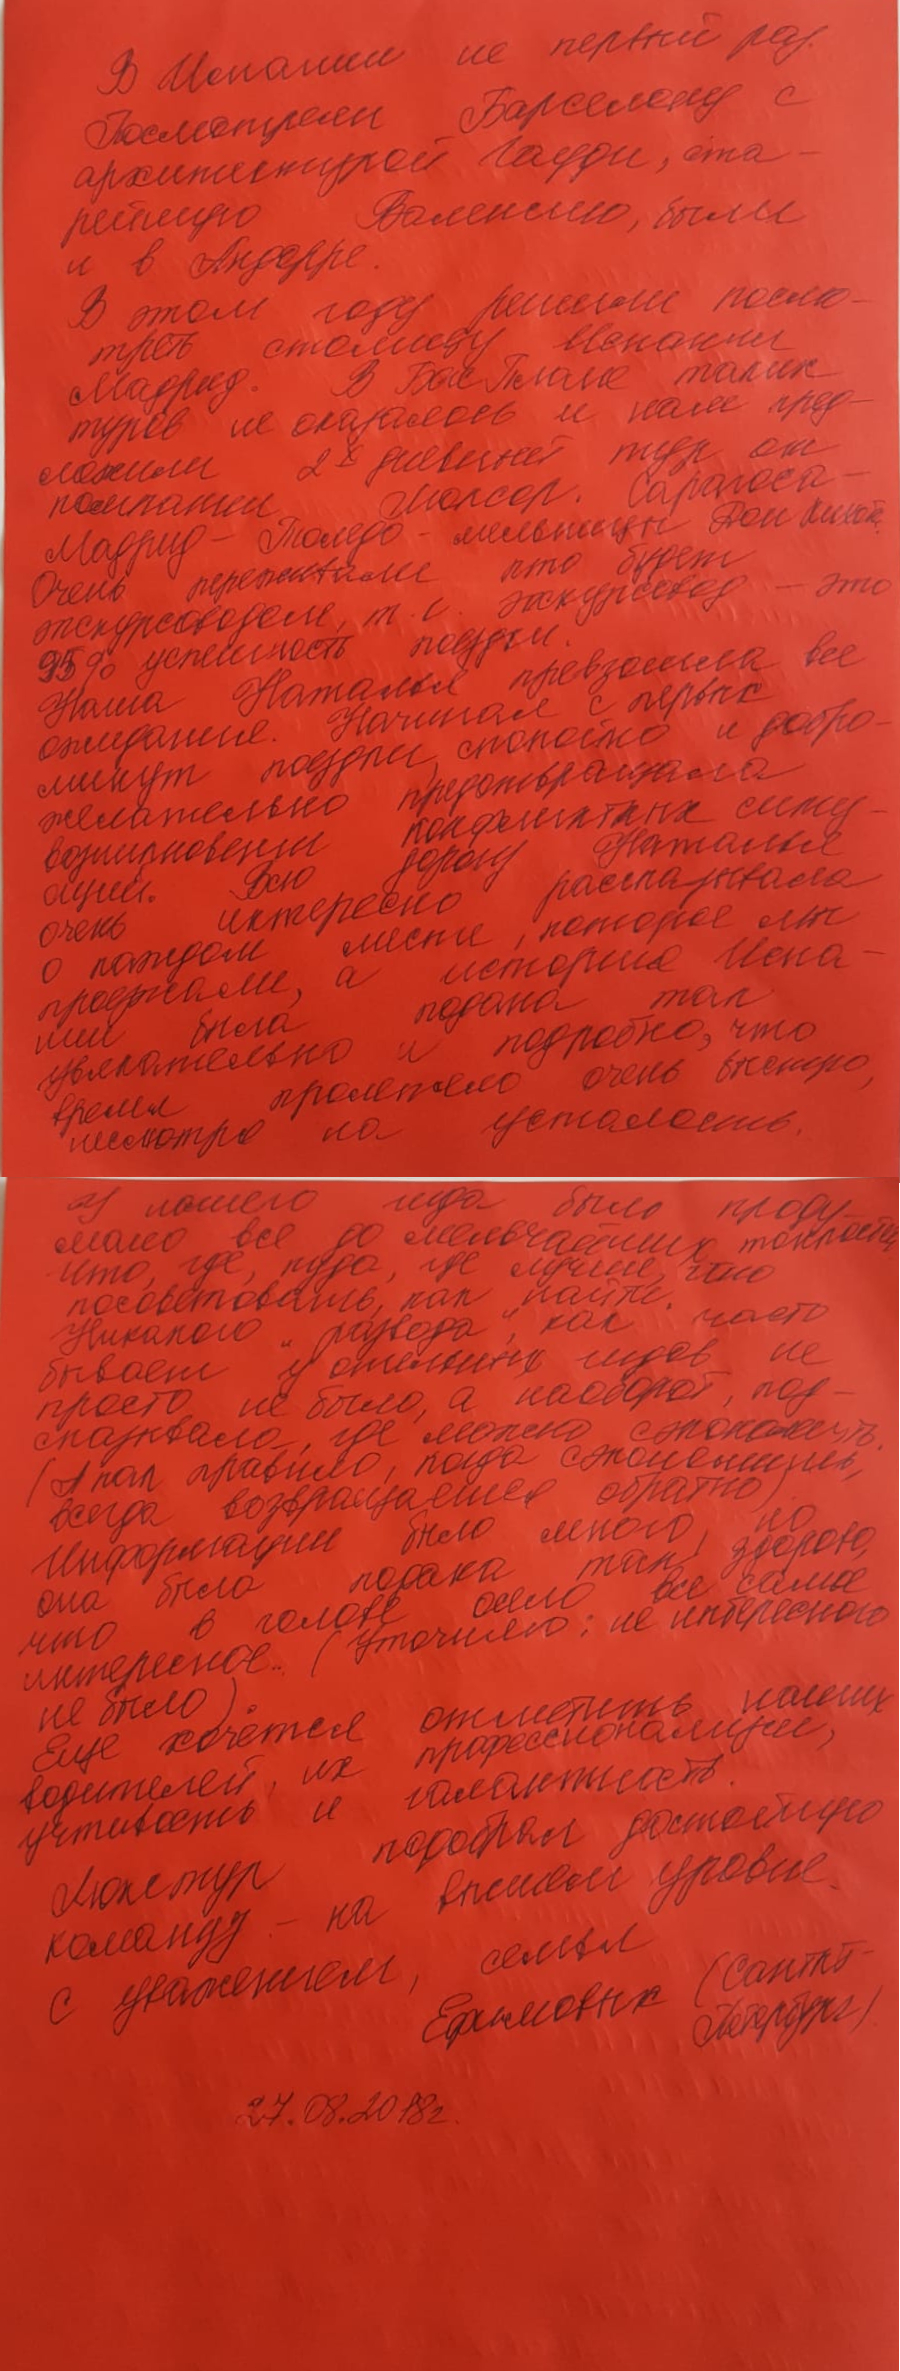 В Испании не первый раз.
Посмотрели Барселону с
архитектурой Гауди, ста-
рейшую Валенсию, были
и в Андорре.
В этом году решили посмо-
треть столицу Испании
Мадрид. В Бас Плане таких
туров не оказалось и нам пред-
ложили 2х дневный тур от
компании Сарагоса-
Мадрид - Толедо - мельницы Дон Кихота.
Очень переживали кто будет
экскурсоводом, т.к. экскурсовод - это
95% успешность поездки.
Наша Наталья превзошла все
ожидания. Начиная с первых
минут поездки, спокойно и добро-
желательно предотвращала
возникновении конфликтных ситу-
аций. Всю дорогу Наталья
очень интересно рассказывала
о каждом месте, которое мы
проезжали, а история Испа-
нии была подана так
увлекательно и подробно, что
время пролетело очень быстро,
несмотря на усталость.
У нашего гида было проду-
мано все до мельчайших тонкостей
что, где, куда, где лучше, что
посоветовать, как найти.
Никакого "развода", как часто
бывает у отельных гидов не
просто не было, а наоборот, под-
сказывала, где можно сэкономить.
(А как правило, когда сэкономишь,
всегда возвращаешься обратно)
Информации было много, но
она была подана так здорово,
что в голове осело все самое
интересное.. (Уточняю: не интересного
не было).
Еще хочется отметить наших
водителей, их профессионализм,
учтивость и галантность.
Люкстур подобрал достойную
команду - на высшем уровне.
С уважением, семья
Ефимовых (Санкт-
Петербург)
27.08.2018г.